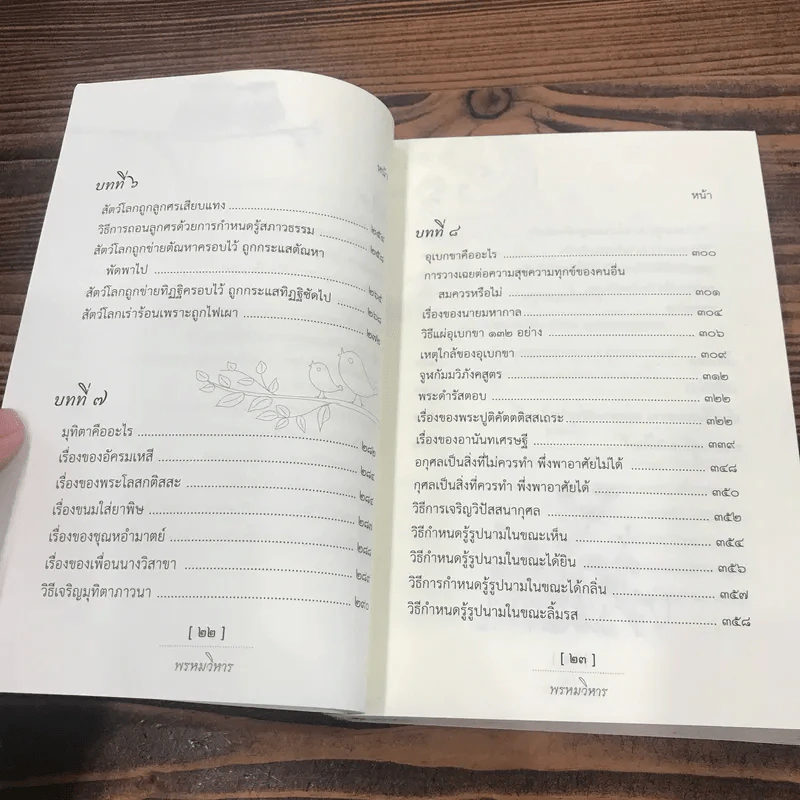 หน้า
บทที่ ๖
สัตว์โลกถูกลูกศรเสียบแทง ๒๕๔
วิธีการถอนลูกศรด้วยการกำหนดรู้สภาวธรรม ๒๕๔
สัตว์โลกถูกข่ายตัณหาครอบไว้ ถูกกระแสตัณหา
พัดพาไป ๒๖๕
สัตว์โลกถูกข่ายทิฏฐิครอบไว้ ถูกกระแสทิฏฐิซัดไป ๒๖๘
สัตว์โลกเร่าร้อนเพราะถูกไฟเผา ๒๗๒
บทที่ ๗
มุทิตาคืออะไร ๒๘๒
เรื่องของอัครมเหสี ๒๘๔
เรื่องของพระโลสกติสสะ ๒๘๔
เรื่องขนมใส่ยาพิษ ๒๘๗
เรื่องของชุณหอำมาตย์ ๒๘๘
เรื่องของเพื่อนนางวิสาขา ๒๘๙
วิธีเจริญมุทิตาภาวนา ๒๙๐
[ ๒๒ ]
พรหมวิหาร
หน้า
บทที่ ๘
อุเบกขาคืออะไร ๓๐๐
การวางเฉยต่อความสุขความทุกข์ของคนอื่น
สมควรหรือไม่ ๓๐๑
เรื่องของนายมหากาล ๓๐๔
วิธีแผ่อุเบกขา ๑๓๒ อย่าง ๓๐๖
เหตุใกล้ของอุเบกขา ๓๐๙
จูฬกัมมวิภังคสูตร ๓๑๒
พระดำรัสตอบ ๓๒๒
เรื่องของพระปูติคัตตติสสเถระ ๓๒๒
เรื่องของอานันทเศรษฐี ๓๓๙
อกุศลเป็นสิ่งที่ไม่ควรทำ พึ่งพาอาศัยไม่ได้ ๓๔๘
กุศลเป็นสิ่งที่ควรทำ พึ่งพาอาศัยได้ ๓๕๐
วิธีการเจริญวิปัสสนากุศล ๓๕๒
วิธีกำหนดรู้รูปนามในขณะเห็น ๓๕๔
วิธีกำหนดรู้รูปนามในขณะได้ยิน ๓๕๖
วิธีการกำหนดรู้รูปนามในขณะได้กลิ่น ๓๕๗
วิธีกำหนดรู้รูปนามในขณะลิ้มรส ๓๕๘
[ ๒๓ ]
พรหมวิหาร